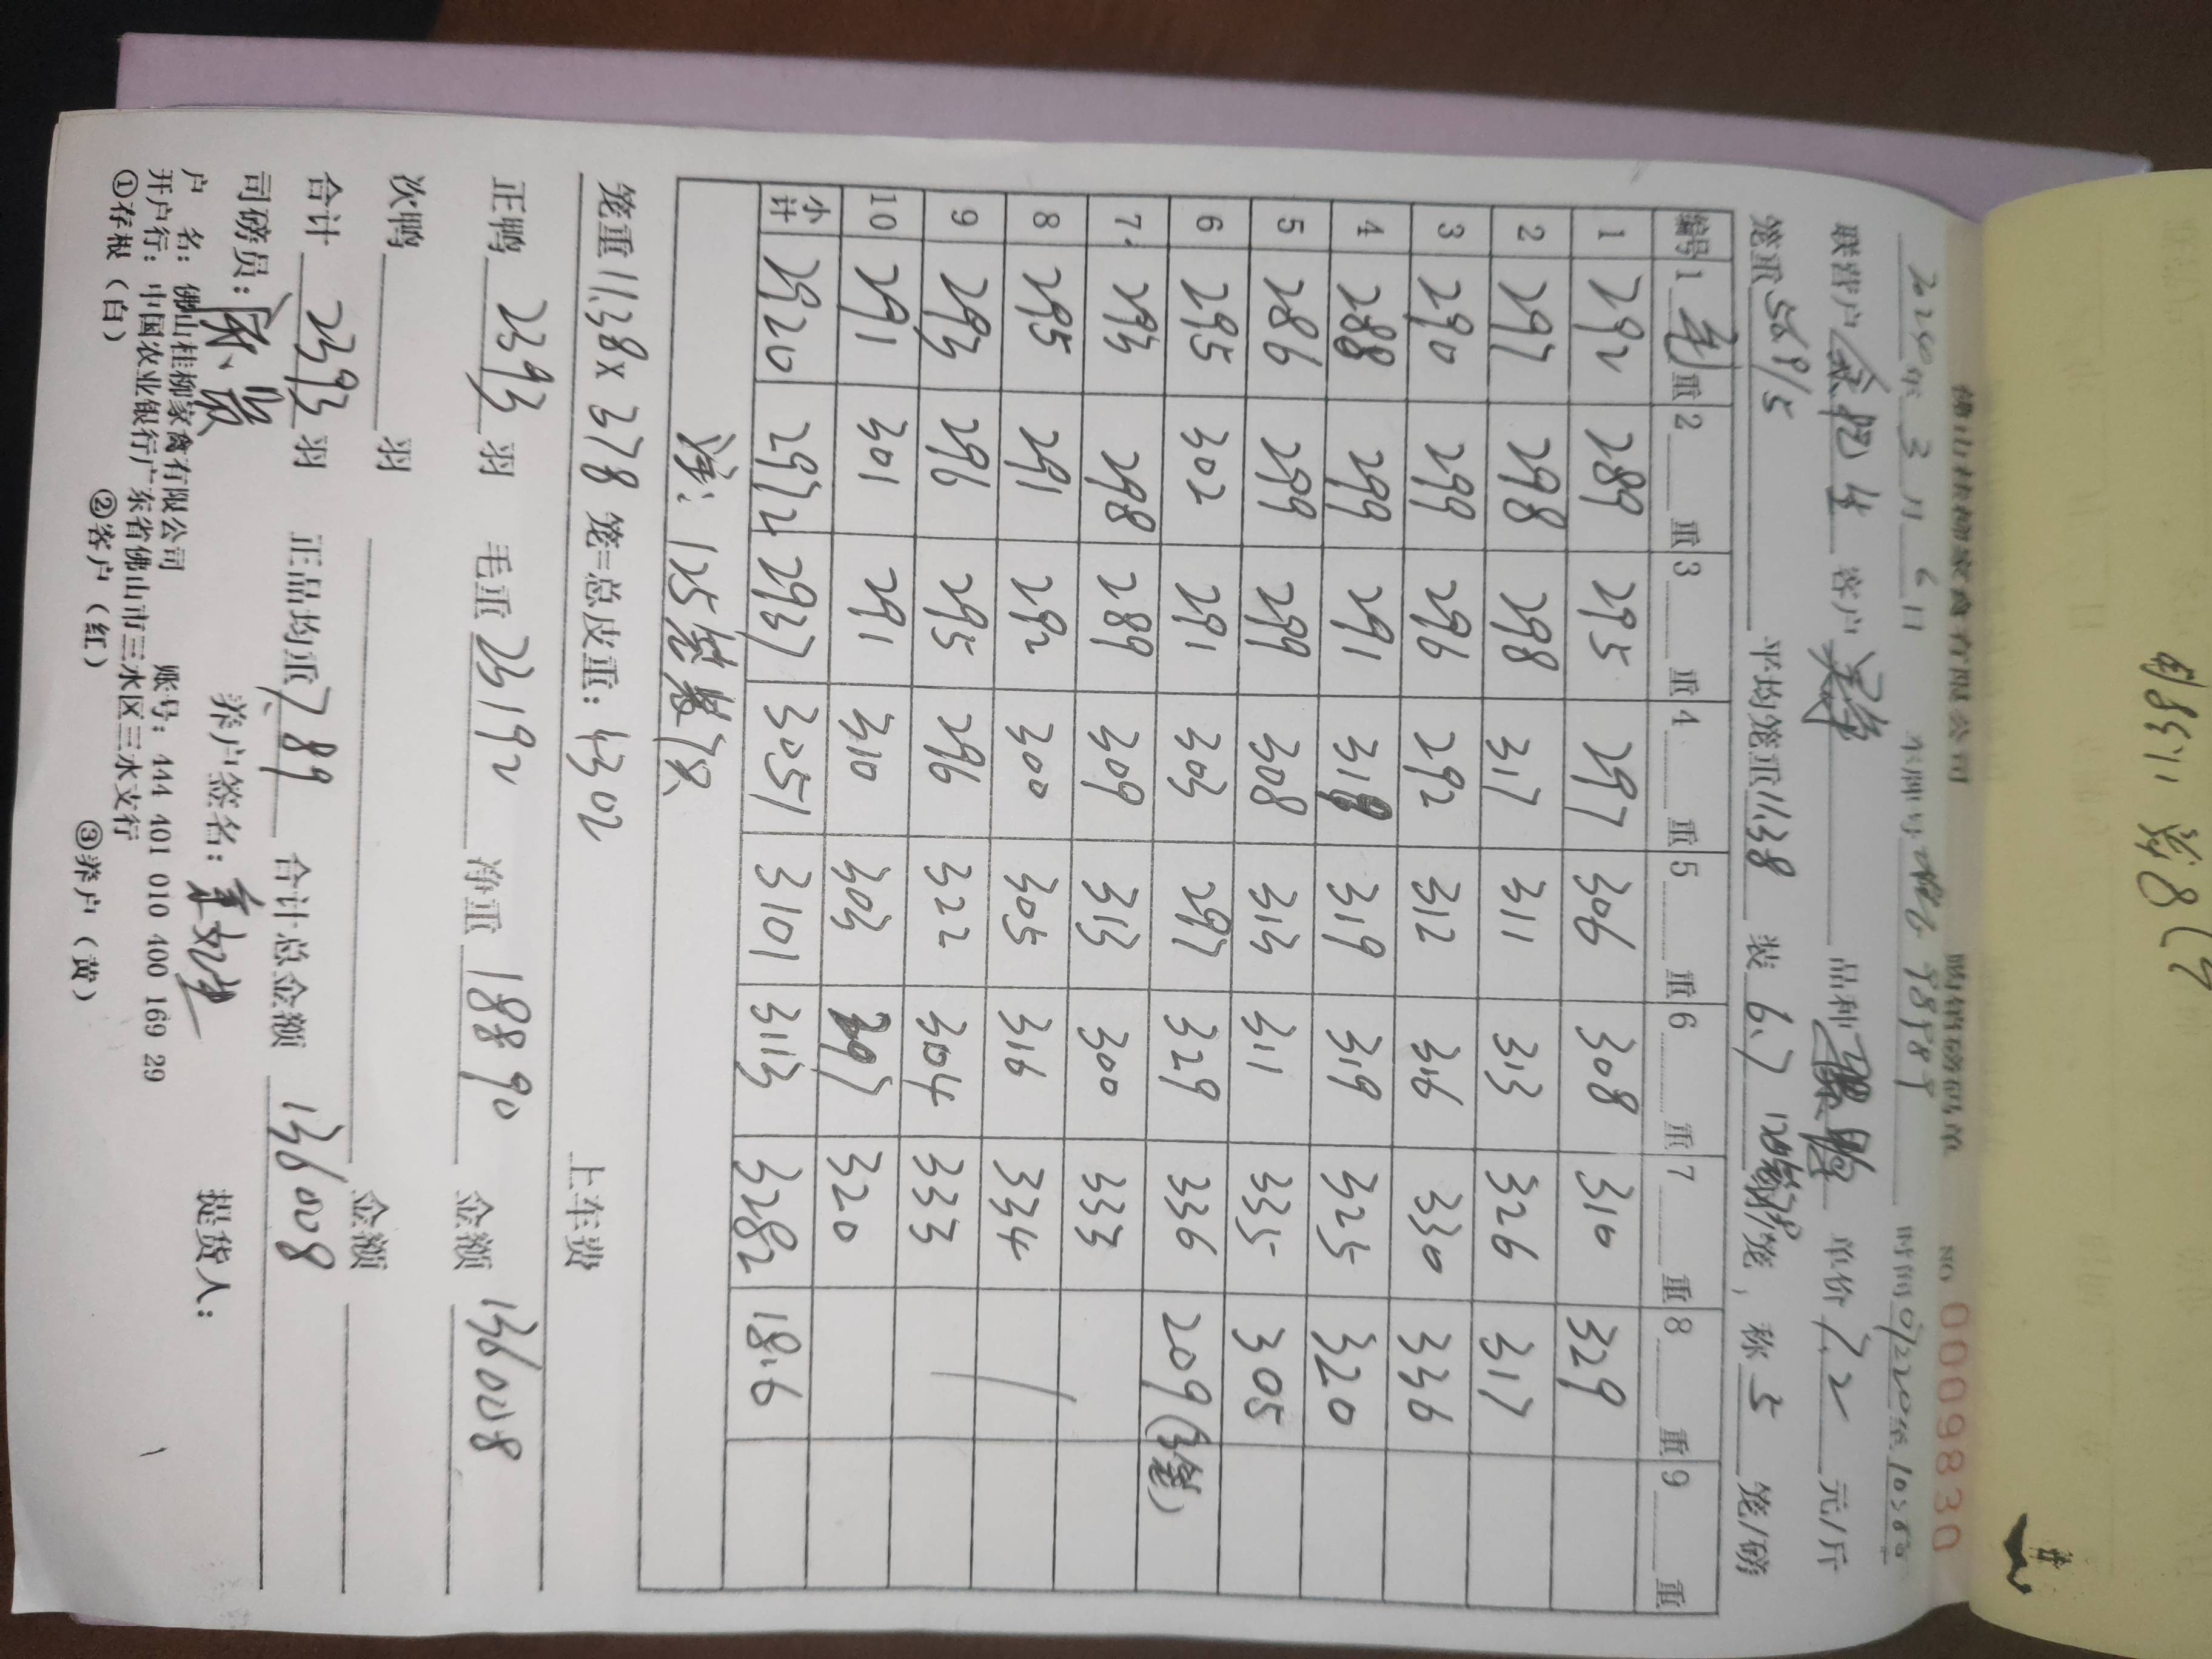 佛山桂柳家禽有限公司 鸭销售磅码单 NO 0009830
2025年3月6日 车牌号 98889 时间
联营户 客户 品种 单价7.2元/斤
笼重569/5 平均笼重11.38 装6.7 笼，称5笼/磅
编号 1毛重 2重 3重 4重 5重 6重 7重 8重 9重
1 292 289 295 297 306 308 310 329
2 297 298 298 317 311 313 326 317
3 290 299 296 292 312 316 330 336
4 288 299 291 319 319 319 325 320
5 286 299 299 308 313 311 335 305
6 295 302 291 303 297 329 336 209(3笼)
7 293 298 289 309 313 300 333
8 295 291 292 300 305 316 334
9 293 296 295 296 322 304 333
10 291 301 291 310 303 297 320
小计 2920 2972 2937 3051 3101 3113 3282 1816
注：125笼装7只
笼重11.38x378笼=总皮重：4302 上车费
正鸭2393羽 毛重23192 净重18890 金额136008
次鸭 羽 金额
合计2393羽 正品均重7.89 合计总金额136008
司磅员： 养户签名： 提货人：
户 名：佛山桂柳家禽有限公司 账号：444 401 010 400 169 29
开户行：中国农业银行广东省佛山市三水区三水支行
①存根（白） ②客户（红） ③养户（黄）